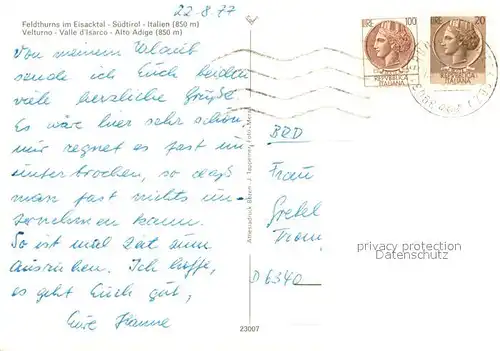 22-8.77
Feldthurns im Eisacktal - Südtirol - Italien (850 m)
Velturno - Valle d'Isarco - Alto Adige (850 m)
LIRE 100
REPUBBLICA
ITALIANA
LIRE 20
REPUBBLICA
ITALIANA
Von meinem Urlaub
sende ich Euch beiden
viele herzliche Grüße.
Es wäre hier sehr schön
nur regnet es fast un
unterbrochen, so daß
man fast nichts un-
ternehmen kann.
So ist viel Zeit zum
Ausruhen. Ich hoffe,
es geht Euch gut,
Eure Hanne
BRD
Frau
Gretel
D 6340
privacy protection
address
23007